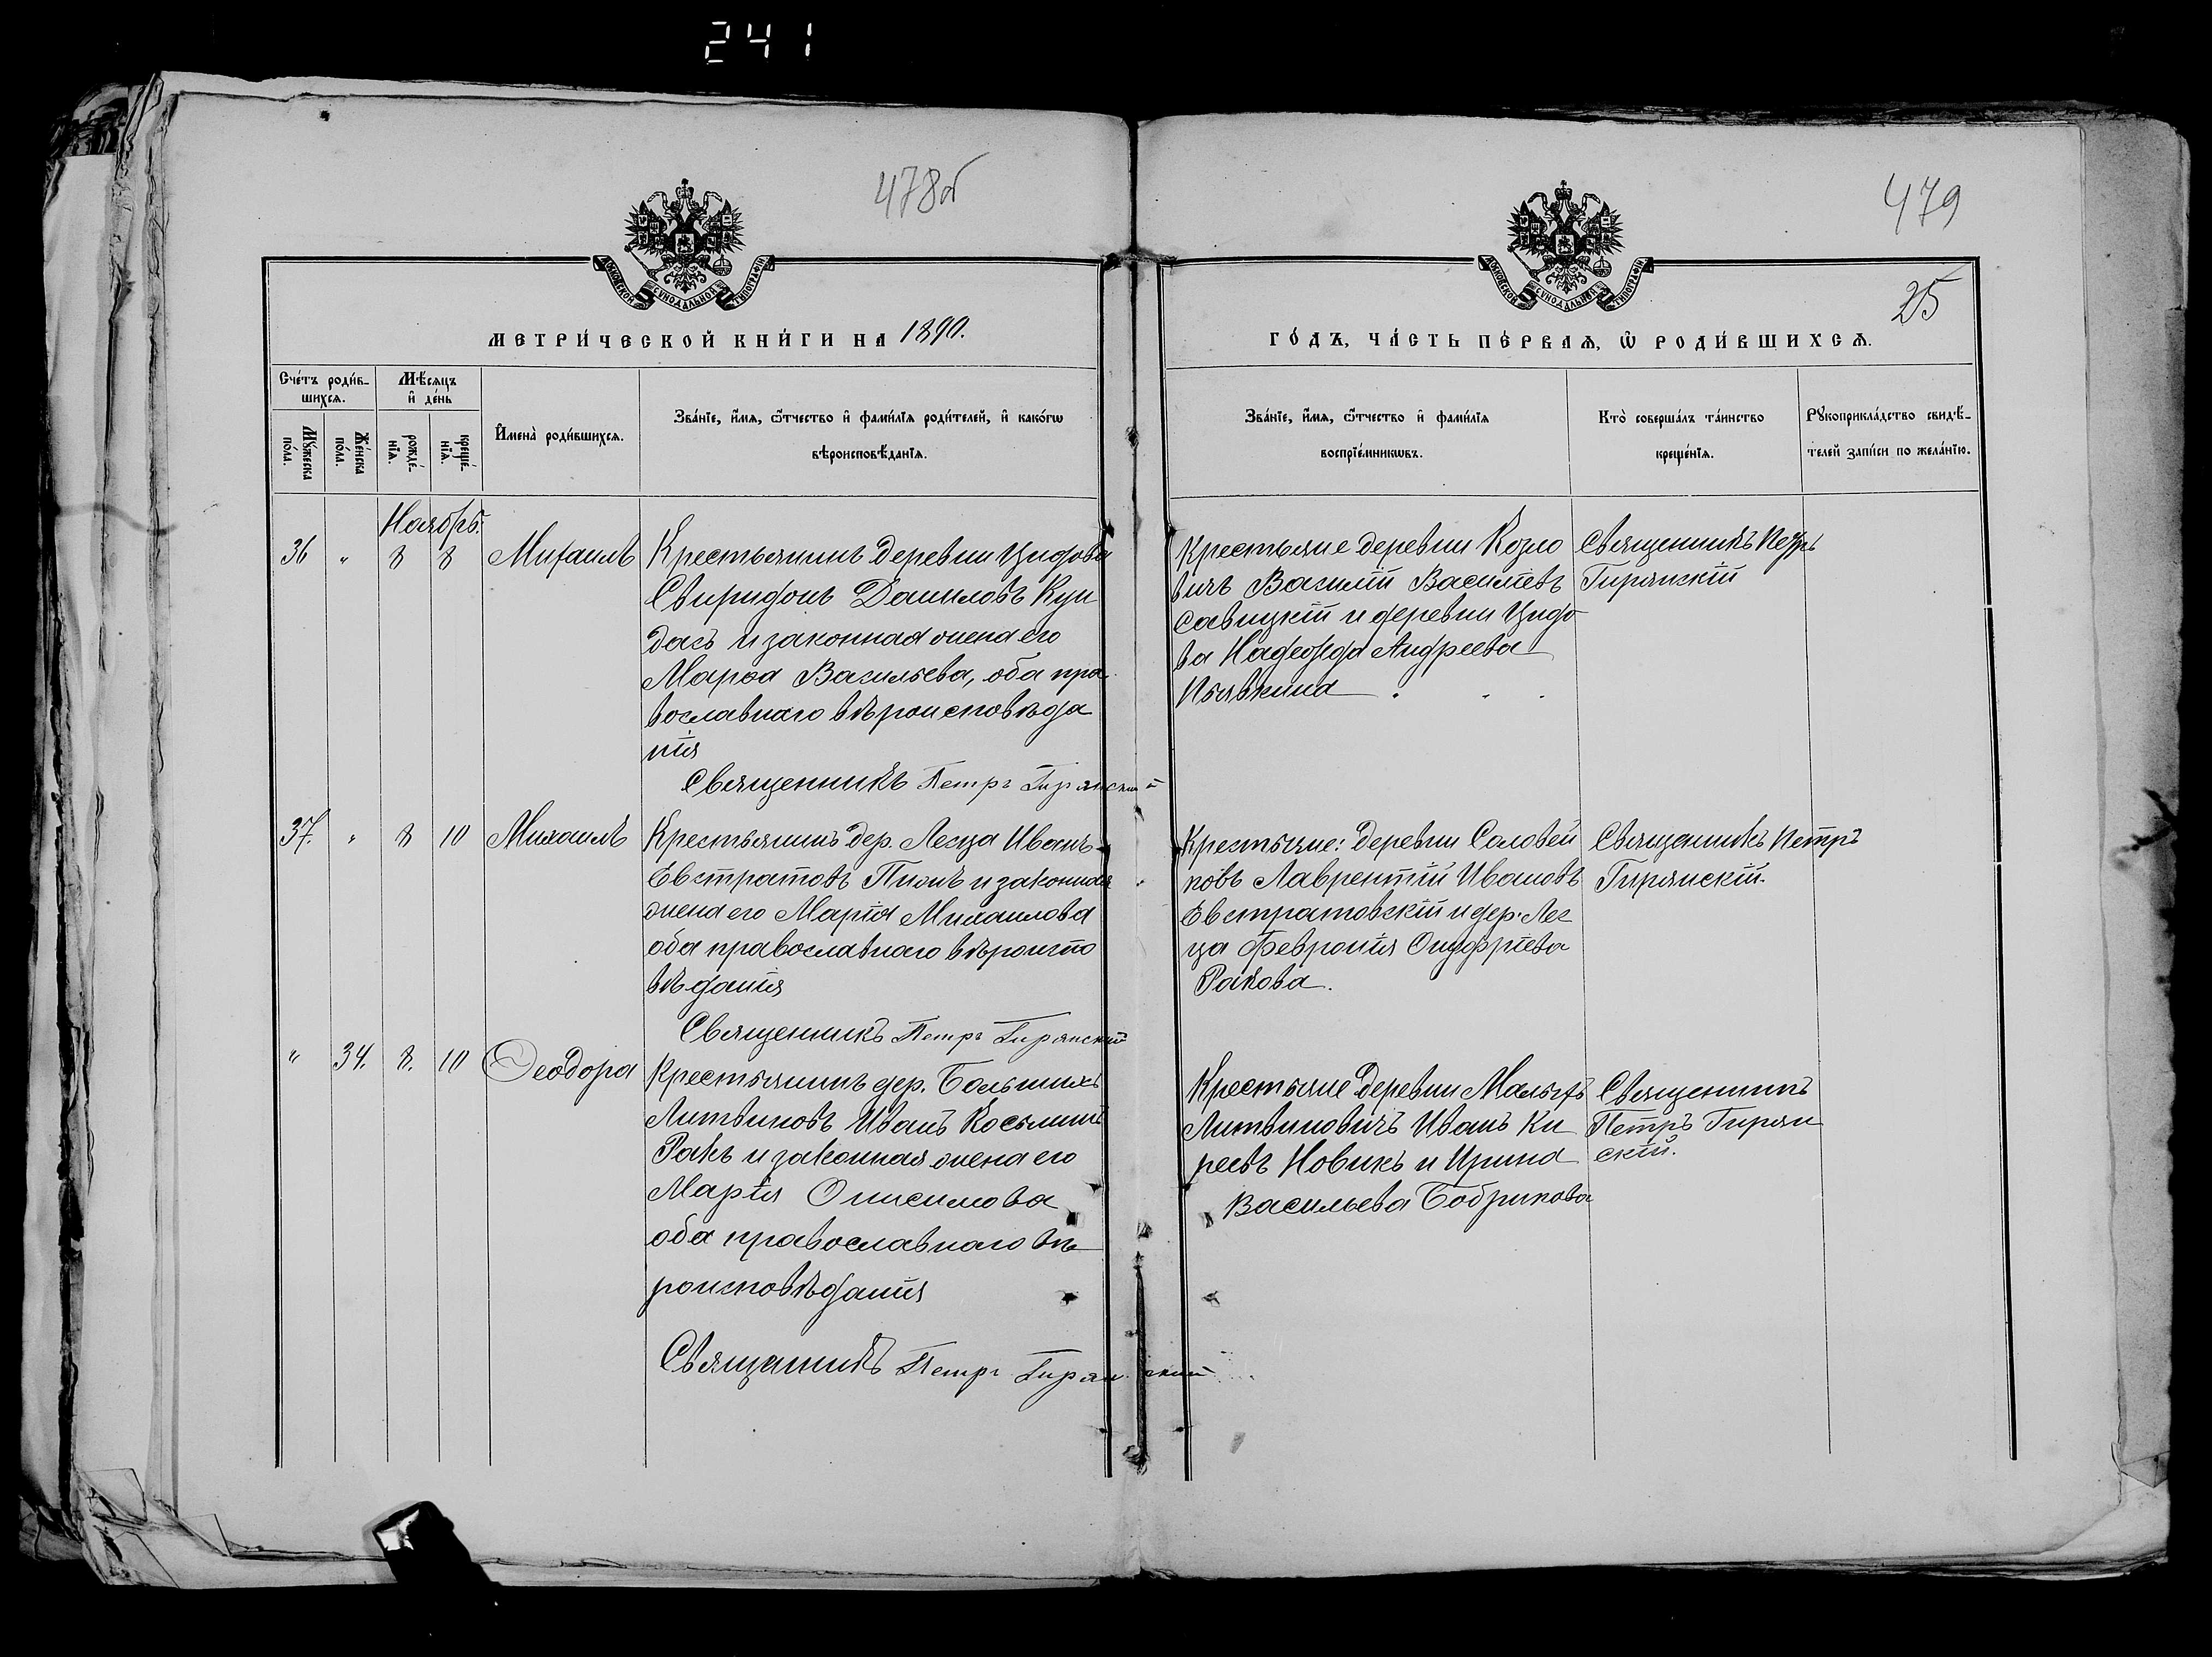 241
478об
479
25
МОСКОВСКОЙ СѴНОДАЛЬНОЙ ТИПОГРАФІИ
МОСКОВСКОЙ СѴНОДАЛЬНОЙ ТИПОГРАФІИ
МЕТРИ́ЧЕСКОЙ КНИ́ГИ НА 1890.
ГО́ДЪ, ЧА́СТЬ ПЕ́РВАѦ, Ѽ РОДИ́ВШИХСѦ.
Сче́тъ роди́в-
шихсѧ.
Мꙋ́жеска
по́ла.
Же́нска
по́ла.
Мѣ́сѧцъ
и҆ де́нь
рожде́-
нїѧ.
креще́-
нїѧ.
И҆мена̀ роди́вшихсѧ.
Зва́нїе, и҆́мѧ, ѻ҆́тчество и҆ фами́лїѧ роди́телей, и҆ како́гѡ
вѣроисповѣ́данїѧ.
Зва́нїе, и҆́мѧ, ѻ҆́тчество и҆ фами́лїѧ
воспрїе́мникѡвъ.
Кто̀ соверша́лъ та́инство
креще́нїѧ.
Рꙋкоприкла́дство свидѣ́-
телей за́писи по жела́нїю.
Ноябрь.
36 " 8 8 Михаилъ
Крестьянинъ деревни Цидова
Свиридонъ Даниловъ Кун
дасъ и законная жена его
Марѳа Васильева, оба пра
вославнаго вѣроисповѣда
нія
Священникъ Петръ Гирянскій
Крестьяне деревни Козло
вичъ Василій Василіевъ
Савицкій и деревни Цидо
ва Надежда Андреева
Пьявкина
Священникъ Петръ
Гирянскій
37. " 8 10 Михаилъ
Крестьянинъ дер. Легца Иванъ
Евстратовъ Пишъ и законная
жена его Марія Михаилова
оба православнаго вѣроиспо
вѣданія
Священникъ Петръ Гирянскій
Крестьяне: деревни Соловей
ковъ Лаврентій Ивановъ
Евстратовскій и дер. Лег
ца Февронія Онуфріева
Ракова.
Священникъ Петръ
Гирянскій.
" 34. 8. 10 Ѳеодора
Крестьянинъ дер. Большихъ
Литвиновъ Иванъ Косьминъ
Ракъ и законная жена его
Марія Онисимова
оба православнаго вѣ
роисповѣданія
Священникъ Петръ Гирянскій
Крестьяне деревни Малыхъ
Литвиновичъ Иванъ Ки
реевъ Новикъ и Ирина
Васильева Бобрикова
Священникъ
Петръ Гирян
скій.